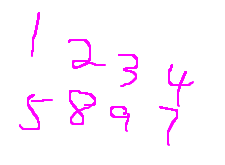 1 2 3 4
5 8 9 7